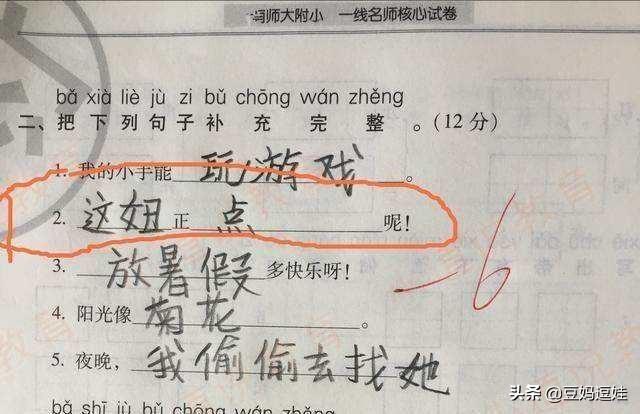 师大附小 一线名师核心试卷
bǎ xià liè jù zi bǔ chōng wán zhěng
二、把下列句子补充完整。(12分)
1. 我的小手能 玩游戏 。
2. 这妞正 点 呢!
3. 放暑假 多快乐呀!
4. 阳光像 菊花 。
5. 夜晚, 我偷偷去找她
-6
bǎ shī jù bǔ chōng wán zhěng
头条 @豆妈逗娃